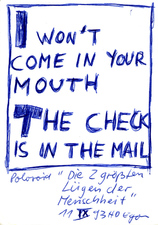 I WON'T
COME IN YOUR
MOUTH
THE CHECK
IS IN THE MAIL
Poloroid "Die 2 größten
Lügen der
Menschheit"
11 IX 93